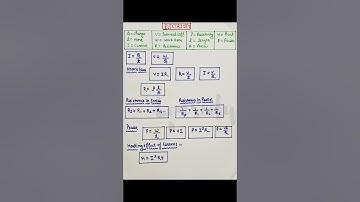 ELECTRICITY
Q = Charge
V = Potential diff
ρ = Resistivity
H = Heat
t = Time
W = Work done
l = Length
P = Power
I = Current
R = Resistance
A = Area
I = Q/t
V = W/Q
Ohm's Law
V = IR
R = V/I
I = V/R
R = ρ l/A
Resistance in Series
Resistance in Parallel
Rs = R1 + R2 + R3 -
1/Rp = 1/R1 + 1/R2 + 1/R3 -
Power
P = W/t
P = VI
P = I²R
P = V²/R
Heating Effect of Current =
H = I²Rt